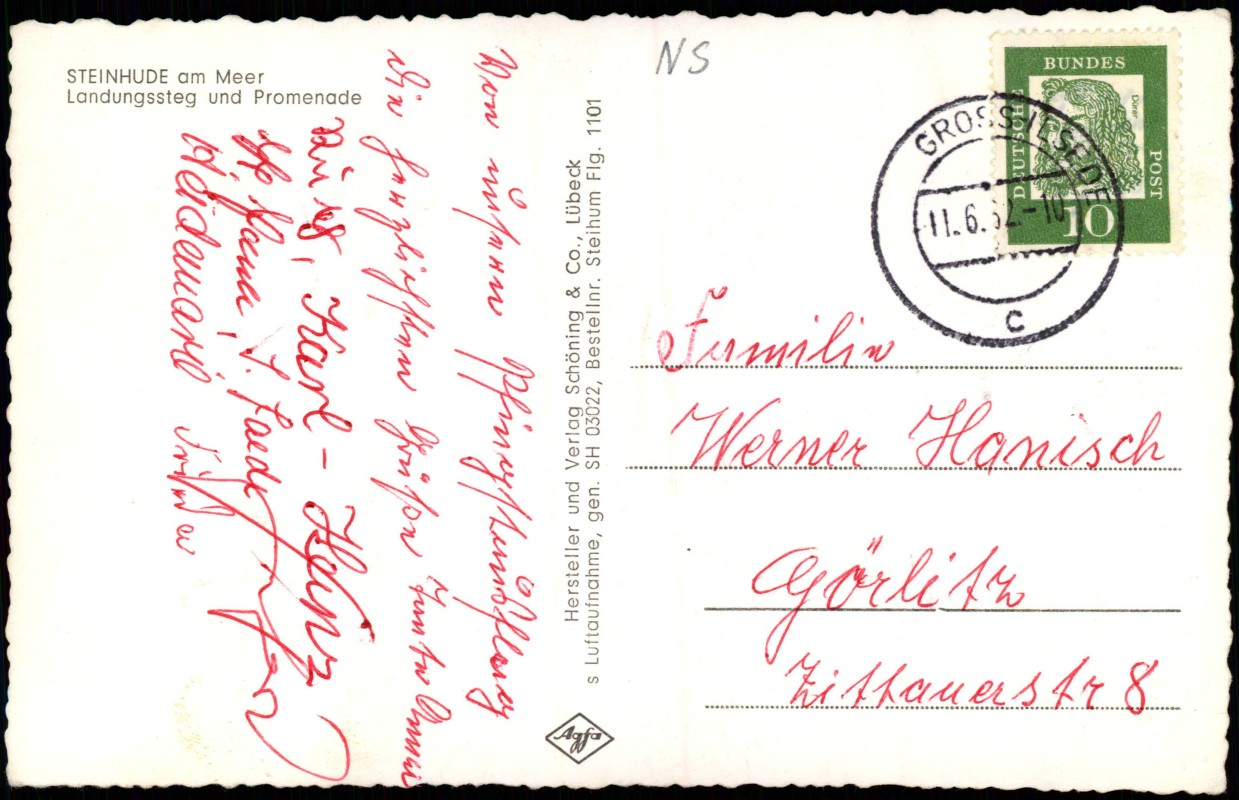 STEINHUDE am Meer
Landungssteg und Promenade
Von unserem Pfingstausflug
die herzlichsten Grüße Tante Anni
Karl-Heinz
Hersteller und Verlag Schöning & Co., Lübeck
s Luftaufnahme, gen. SH 03022, Bestellnr. Steihum Flg. 1101
Agfa
NS
DEUTSCHE BUNDES POST
Dürer
10
GROSS ILSEDE
11.6.62-10
c
Familie
Werner Hanisch
Görlitz
Zittauerstr 8